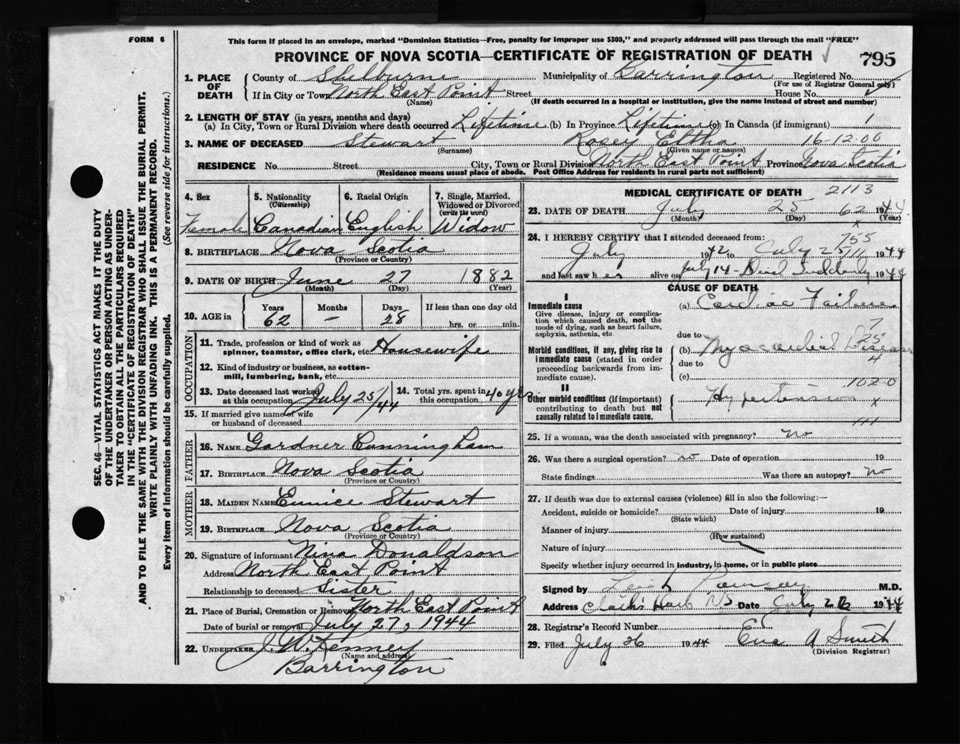 FORM 6
This form if placed in an envelope, marked "Dominion Statistics—Free, penalty for improper use $300," and properly addressed will pass through the mail "FREE"
PROVINCE OF NOVA SCOTIA—CERTIFICATE OF REGISTRATION OF DEATH 795
1. PLACE OF DEATH
County of Shelburne Municipality of Barrington Registered No.
(For use of Registrar General only)
If in City or Town North East Point Street House No.
(Name) (If death occurred in a hospital or institution, give the name instead of street and number)
2. LENGTH OF STAY (in years, months and days)
(a) In City, Town or Rural Division where death occurred Lifetime (b) In Province Lifetime (c) In Canada (if immigrant) 1
3. NAME OF DECEASED Stewart Rosey 16-12.00
(Surname) (Given name or names)
RESIDENCE No. Street City, Town or Rural Division North East Point Province Nova Scotia
(Residence means usual place of abode. Post Office Address for residents in rural parts not sufficient)
4. Sex Female
5. Nationality (Citizenship) Canadian
6. Racial Origin English
7. Single, Married, Widowed or Divorced (write the word) Widow
8. BIRTHPLACE Nova Scotia
(Province or Country)
9. DATE OF BIRTH June 27 1882
(Month) (Day) (Year)
10. AGE in Years 62 Months – Days 28 If less than one day old hrs. or min.
OCCUPATION
11. Trade, profession or kind of work as spinner, teamster, office clerk, etc. Housewife
12. Kind of industry or business, as cotton-mill, lumbering, bank, etc.
13. Date deceased last worked at this occupation July 25/44 14. Total yrs. spent in this occupation 40 yrs
15. If married give name of wife or husband of deceased
FATHER
16. NAME Gardner Cunningham
17. BIRTHPLACE Nova Scotia
(Province or Country)
MOTHER
18. MAIDEN NAME Eunice Stewart
19. BIRTHPLACE Nova Scotia
(Province or Country)
20. Signature of informant Nina Donaldson
Address North East Point
Relationship to deceased Sister
21. Place of Burial, Cremation or Removal North East Point
Date of burial or removal July 27, 1944
22. UNDERTAKER J. W. Kenney
(Name and address)
Barrington
MEDICAL CERTIFICATE OF DEATH 2113
23. DATE OF DEATH July 25 62 1944
(Month) (Day) (Year)
24. I HEREBY CERTIFY that I attended deceased from: 755
July 1942 to July 25 1944
and last saw her alive on July 14 - Died Suddenly 1944
CAUSE OF DEATH
I
Immediate cause (a) Cardiac Failure
Give disease, injury or complication which caused death, not the mode of dying, such as heart failure, asphyxia, asthenia, etc. due to
Morbid conditions, if any, giving rise to immediate cause (stated in order proceeding backwards from immediate cause). (b) Myocardial Disease
due to
(c) 1020
II
Other morbid conditions (if important) contributing to death but not causally related to immediate cause. Hypertension x
25. If a woman, was the death associated with pregnancy? no
26. Was there a surgical operation? no Date of operation 19
State findings Was there an autopsy? no
27. If death was due to external causes (violence) fill in also the following:—
Accident, suicide or homicide? Date of injury 19
(State which)
Manner of injury
(How sustained)
Nature of injury
Specify whether injury occurred in industry, in home, or in public place
Signed by M.D.
Address Clark's Harb NS Date July 26 1944
28. Registrar's Record Number
29. Filed July 26 1944 Eva A Smith
(Division Registrar)
SEC. 46—VITAL STATISTICS ACT MAKES IT THE DUTY
OF THE UNDERTAKER OR PERSON ACTING AS UNDER-
TAKER TO OBTAIN ALL THE PARTICULARS REQUIRED
IN THE "CERTIFICATE OF REGISTRATION OF DEATH"
AND TO FILE THE SAME WITH THE DIVISION REGISTRAR WHO SHALL ISSUE THE BURIAL PERMIT.
WRITE PLAINLY WITH UNFADING INK. THIS IS A PERMANENT RECORD.
Every item of information should be carefully supplied. (See reverse side for instructions.)